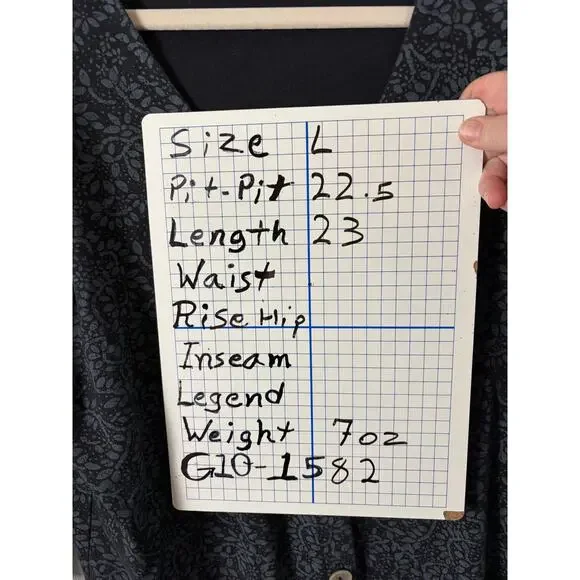 Size L
Pit-Pit 22.5
Length 23
Waist
Rise Hip
Inseam
Legend
Weight 7oz
G10-1582